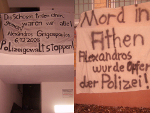 Die Schüsse trafen ihn,
waren wir alle!
Alexandros Grigoropoulos
6.12.2008
Polizeigewalt stoppen!
Mord in
Athen
Alexandros
wurde Opfer
der Polizei!